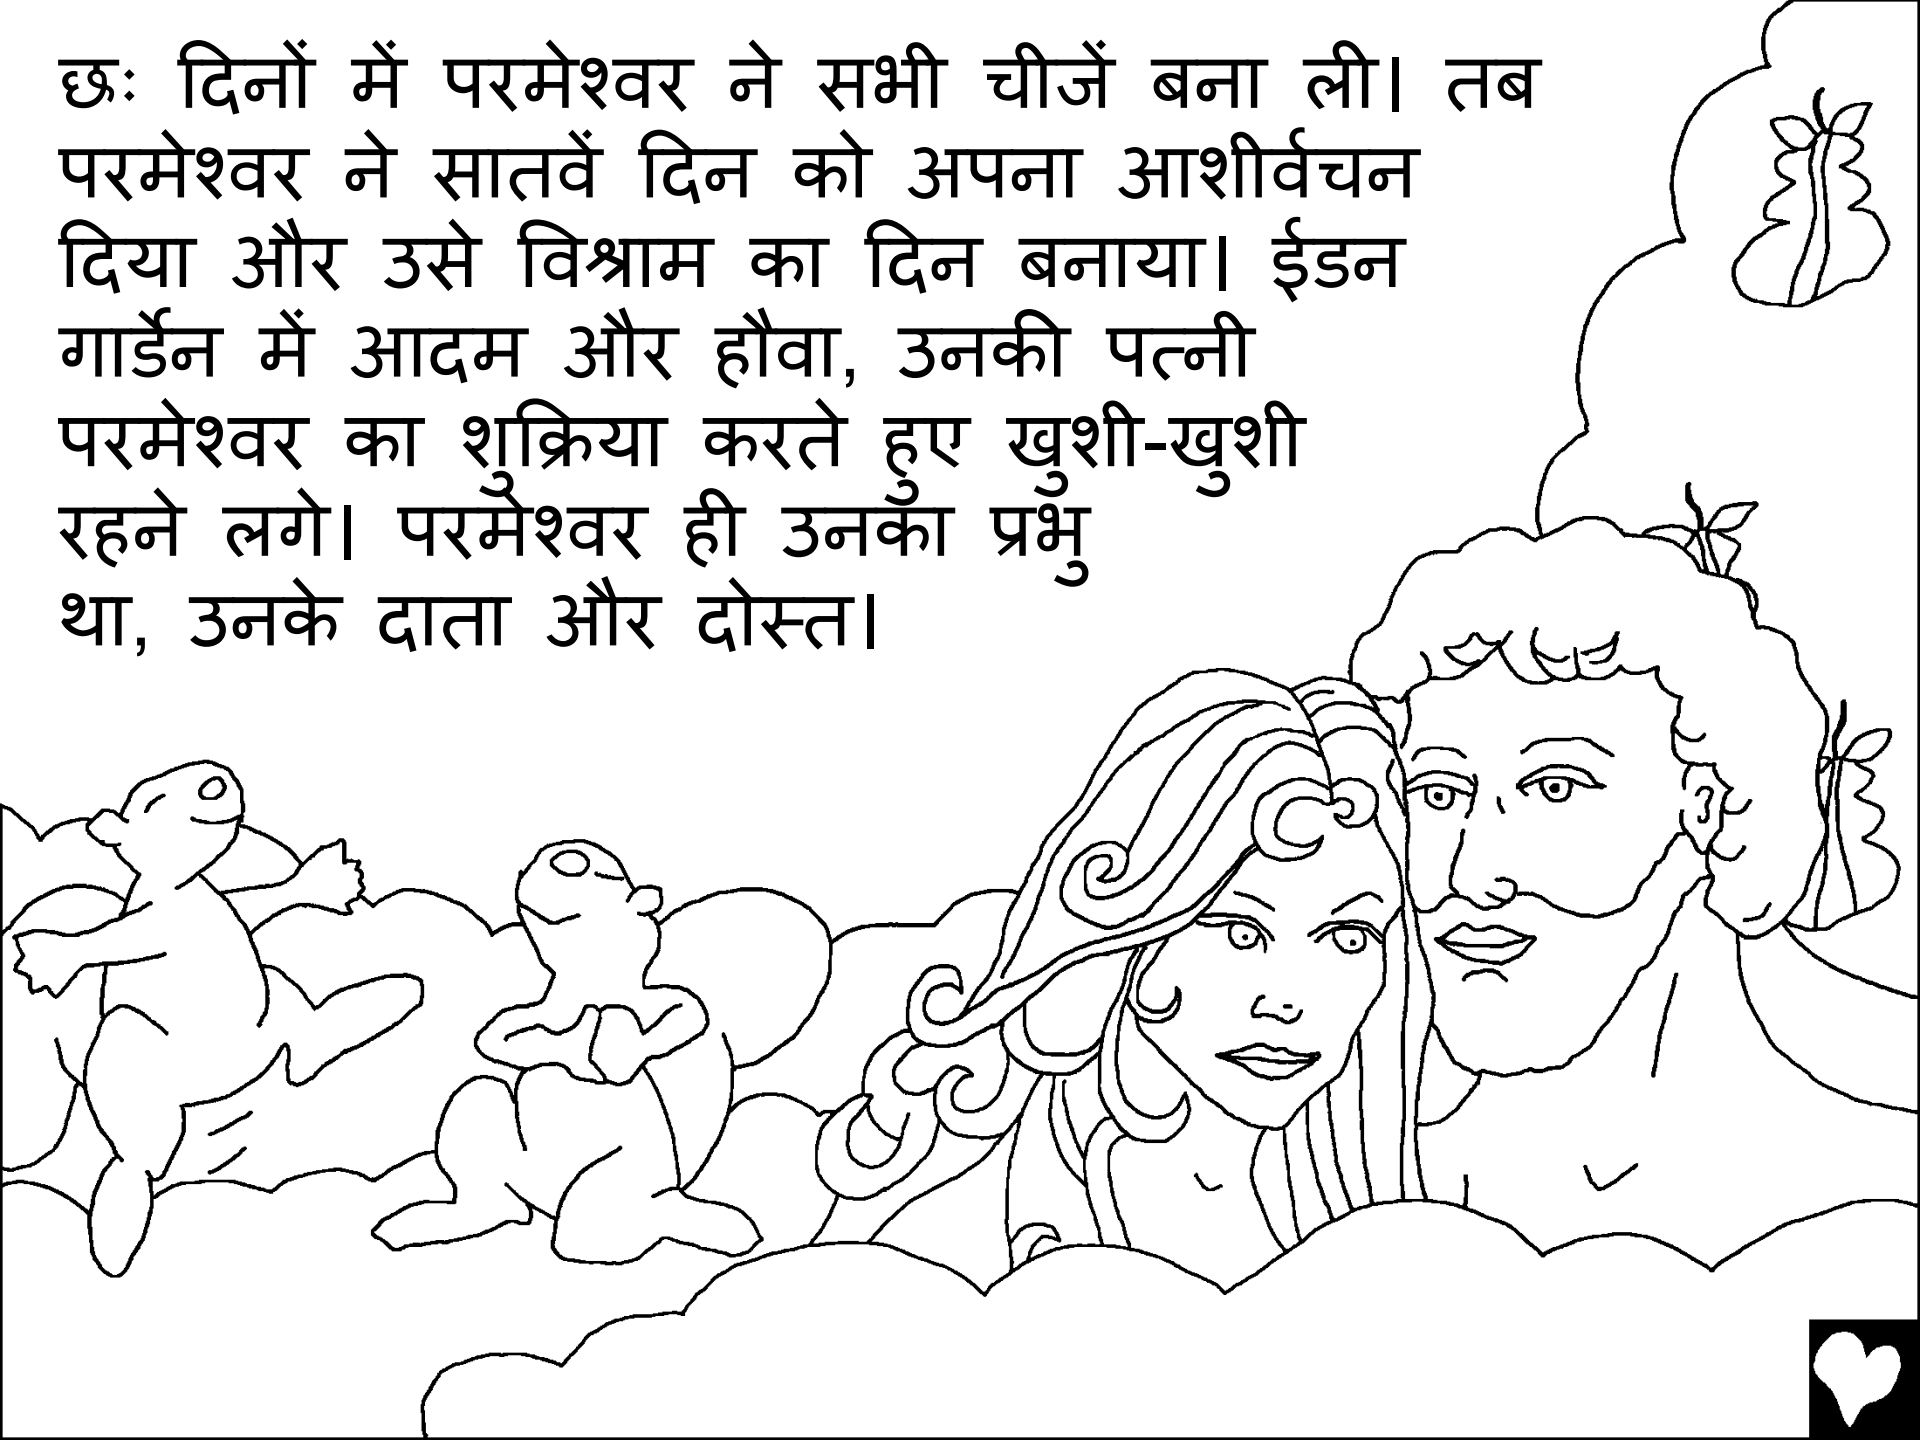 छः दिनों में परमेश्वर ने सभी चीजें बना ली। तब
परमेश्वर ने सातवें दिन को अपना आशीर्वचन
दिया और उसे विश्राम का दिन बनाया। ईडन
गार्डेन में आदम और हौवा, उनकी पत्नी
परमेश्वर का शुक्रिया करते हुए खुशी-खुशी
रहने लगे। परमेश्वर ही उनका प्रभु
था, उनके दाता और दोस्त।